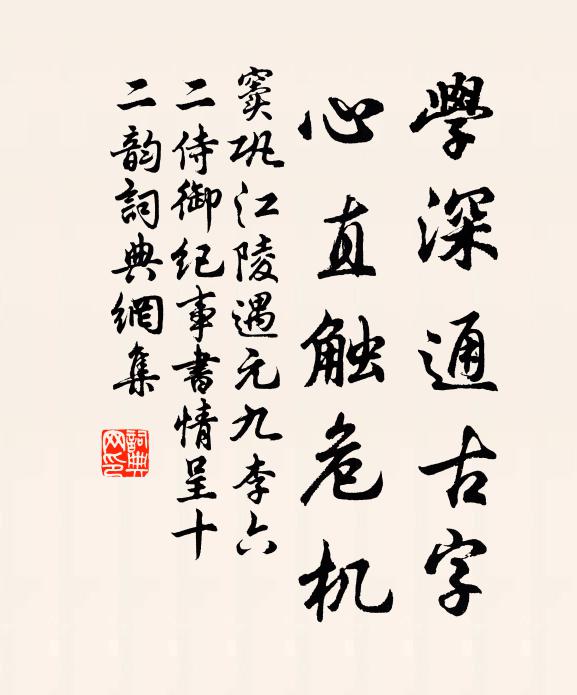 學深通古字
心直触危机
窦巩江陵遇元九李六
二侍御纪事書情呈十
二韵詞典網集
詞典网印